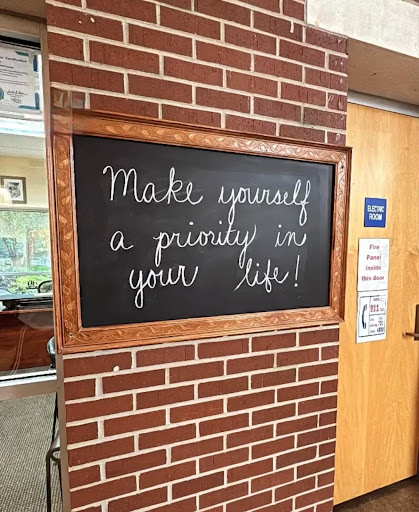 Make yourself
a priority in
your life!
ELECTRIC
ROOM
Fire
Panel
inside
this door
911